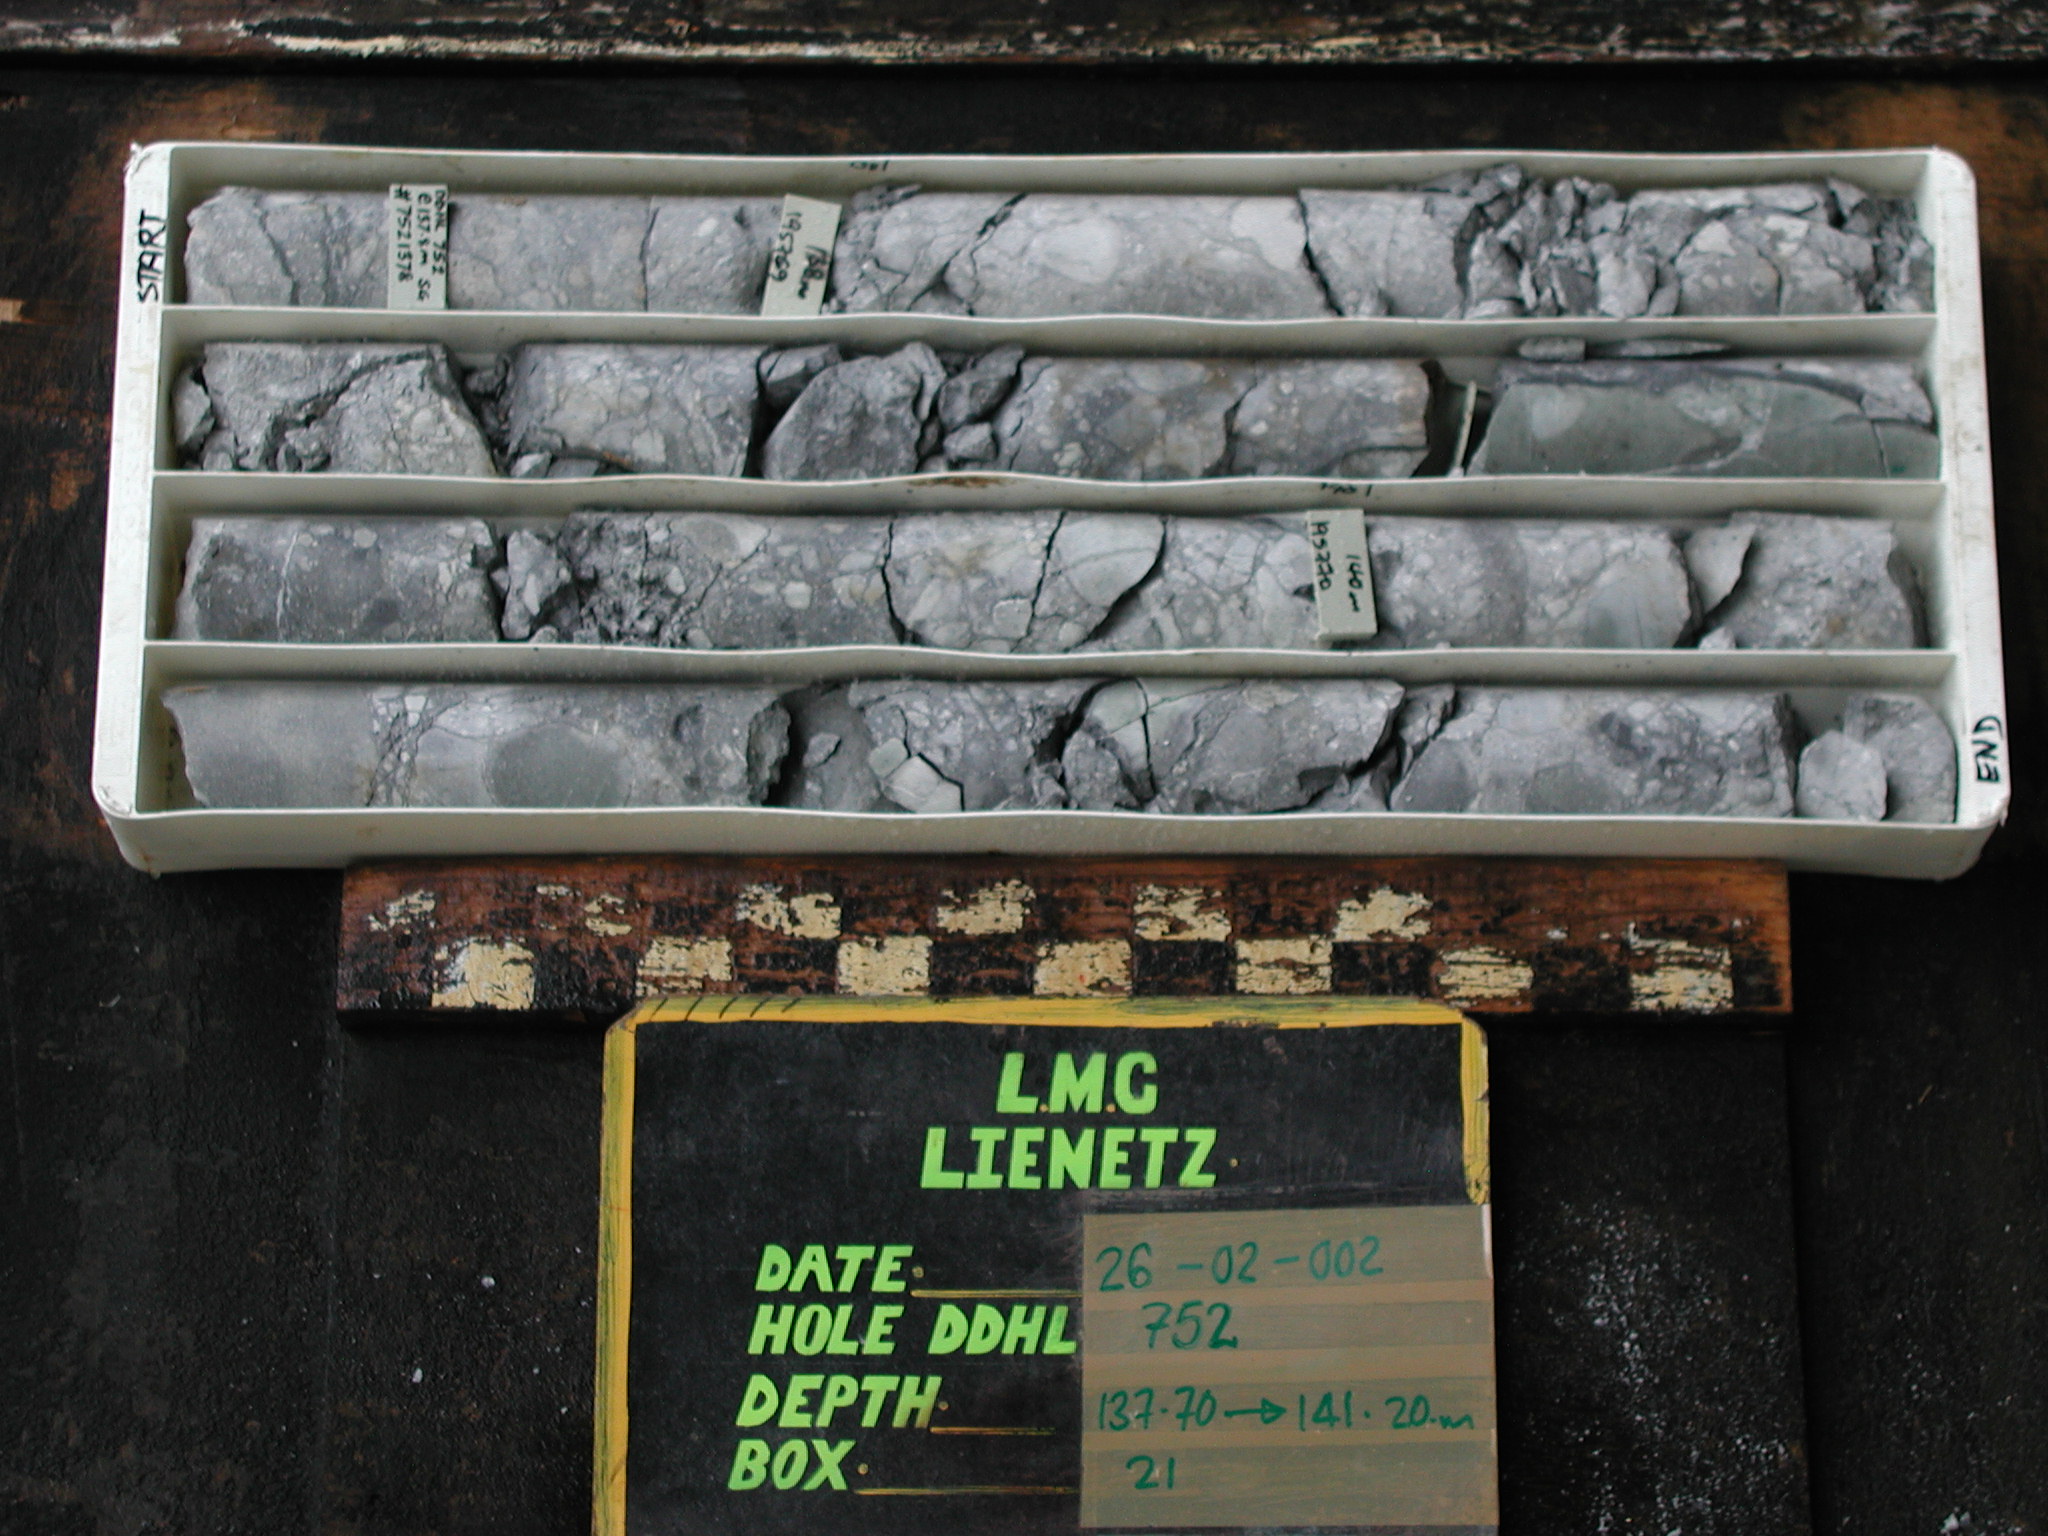 START
DDHL 752
@ 137.8m SG
# 7521378
138m
195769
140m
195770
END
L.M.C
LIENETZ.
DATE. 26-02-002
HOLE DDHL 752
DEPTH. 137.70→141.20.m
BOX. 21